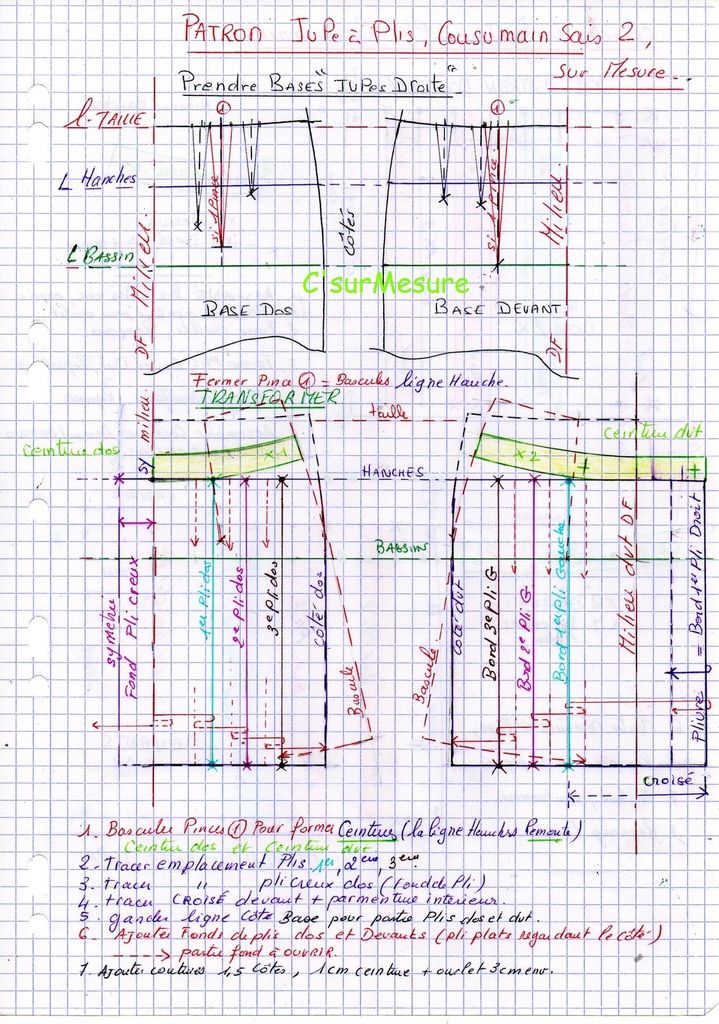 PATRON JuPe à Plis, Cousu main Sais 2,
sur Mesure
Prendre BASES "JUPes DROITE"
1
1
L. TAILLE
L Hanches
L BASSIN
DF Milieu
si 1 Pince
si 1 Pince
côtés
DF Milieu
C'surMesure
BASE DOS
BASE DEVANT
Fermer Pince 1 = Bascules ligne Hanche.
TRANSFORMER
taille
Ceinture dos
Ceinture dvt
sy milieu
x 1
x 2
HANCHES
BASSIN
Fond Pli creux
1er Pli dos
2e Pli dos
3e Pli dos
côté dos
Bascule
Bascule
côté dvt
Bord 3e Pli G
Bord 2e Pli G
Bord 1er Pli Gauche
Milieu dvt DF
Pliure = Bord 1er Pli Droit
croisé
1. Basculer Pinces 1 Pour former Ceintures (la ligne Hanches Remonte)
Ceinture dos et Ceinture dvt
2. Tracer emplacement Plis 1er, 2ème, 3ème
3. tracer " pli creux dos (fond de Pli)
4. tracer CROISÉ devant + parmenture intérieur.
5. garder ligne côté Base pour partie Plis dos et dvt.
6. Ajouter Fonds de plis dos et Devants (pli plats regardant le côté)
----> partie fond à OUVRIR.
7. Ajouter coutures 1,5 côtés, 1 cm ceinture + ourlet 3cm env.